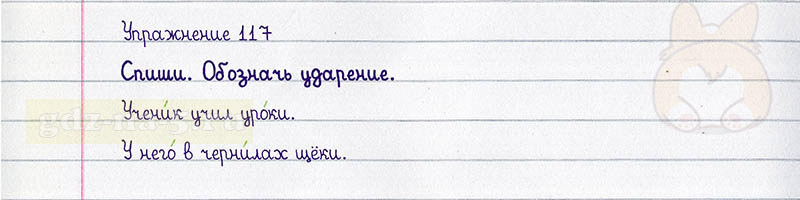 Упражнение 117
Спиши. Обозначь ударение.
Учени́к учил уро́ки.
У него́ в черни́лах щёки.